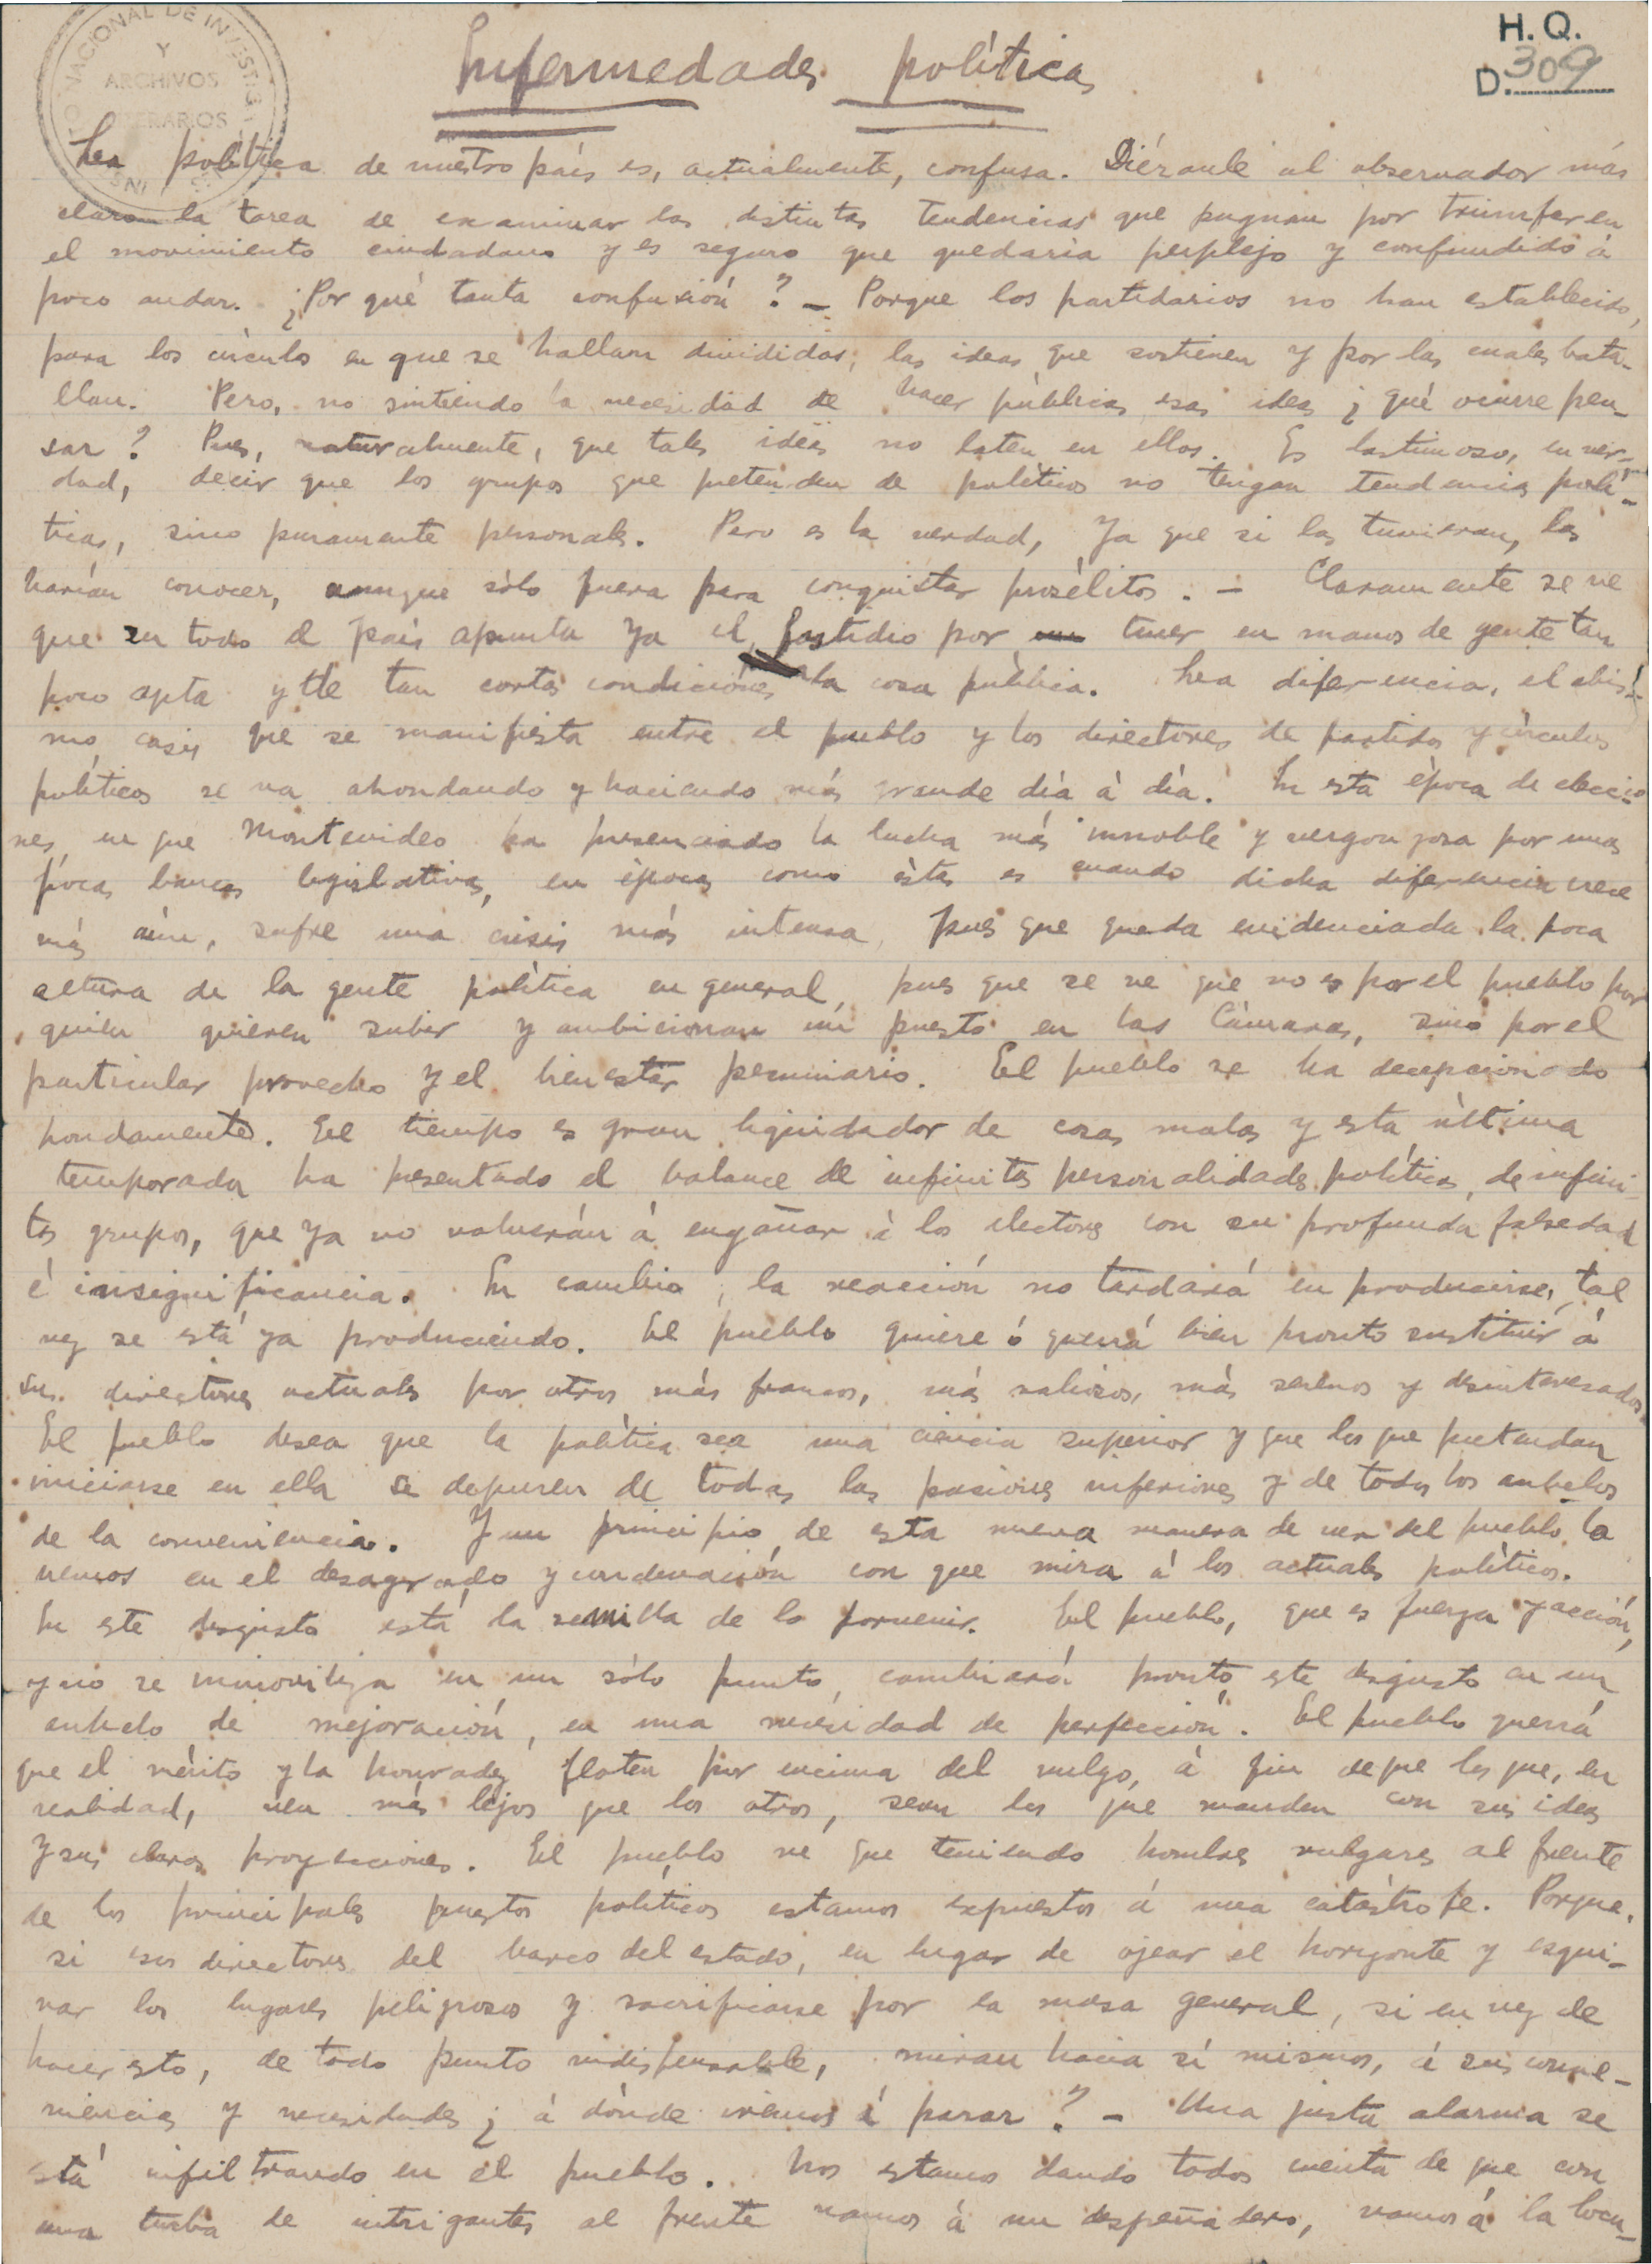 INSTITUTO NACIONAL DE INVESTIGACIONES
Y
ARCHIVOS
LITERARIOS
H. Q.
D. 309
Enfermedades políticas
La política de nuestro país es, actualmente, confusa. Diérasele al observador más
claro la tarea de examinar las distintas tendencias que pugnan por triunfar en
el movimiento ciudadano y es seguro que quedaría perplejo y confundido á
poco andar. ¿Por qué tanta confusión? – Porque los partidarios no han establecido,
para los círculos en que se hallan divididos, las ideas que sostienen y por las cuales bata-
llan. Pero, no sintiendo la necesidad de hacer públicas esas ideas ¿qué ocurre pen-
sar? Pues, naturalmente, que tales ideas no laten en ellos. Es lastimoso, en ver-
dad, decir que los grupos que pretenden de políticos no tengan tendencias polí-
ticas, sino puramente personales. Pero es la verdad, ya que si las tuvieran, las
harían conocer, aunque sólo fuera para conquistar prosélitos. – Claramente se ve
que en todo el país apunta ya el fastidio por tener en manos de gente tan
poco apta y de tan cortas condiciones la cosa pública. La diferencia, el abis-
mo casi, que se manifiesta entre el pueblo y los directores de partidos y círculos
políticos se va ahondando y haciendo más grande día á día. En esta época de eleccio-
nes, en que Montevideo ha presenciado la lucha más innoble y vergonzosa por unas
pocas bancas legislativas, en épocas como éstas es cuando dicha diferencia crece
más aún, sufre una crisis más intensa, pues que queda evidenciada la poca
altura de la gente política en general, pues que se ve que no es por el pueblo por
quien quieren subir y ambicionan un puesto en las Cámaras, sino por el
particular provecho y el bienestar pecuniario. El pueblo se ha decepcionado
hondamente. El tiempo es gran liquidador de cosas malas y esta última
temporada ha presentado el balance de infinitas personalidades políticas, de infini-
tos grupos, que ya no volverán á engañar á los electores con su profunda falsedad
é insignificancia. En cambio, la reacción no tardará en producirse, tal
vez se está ya produciendo. El pueblo quiere ó querrá bien pronto sustituir á
sus directores actuales por otros más francos, más valiosos, más serenos y desinteresados.
El pueblo desea que la política sea una ciencia superior y que los que pretendan
iniciarse en ella se depuren de todas las pasiones inferiores y de todos los anhelos
de la conveniencia. Y un principio de esta nueva manera de ver del pueblo la
vemos en el desagrado y condenación con que mira á los actuales políticos.
En este disgusto está la semilla de lo porvenir. El pueblo, que es fuerza y acción,
y no se inmoviliza en un sólo punto, cambiará pronto este disgusto en un
anhelo de mejoración, en una necesidad de perfección. El pueblo querrá
que el mérito y la honradez floten por encima del vulgo, á fin de que los que, en
realidad, ven más lejos que los otros, sean los que manden con sus ideas
y sus claras proyecciones. El pueblo ve que teniendo hombres vulgares al frente
de los principales puestos políticos estamos expuestos á una catástrofe. Porque,
si esos directores del barco del estado, en lugar de ojear el horizonte y esqui-
var los lugares peligrosos y sacrificarse por la masa general, si en vez de
hacer esto, de todo punto indispensable, miran hacia sí mismos, á sus conve-
niencias y necesidades ¿á dónde iremos á parar? – Una justa alarma se
está infiltrando en el pueblo. Nos estamos dando todos cuenta de que con
una turba de intrigantes al frente vamos á un despeñadero, vamos á la locu-